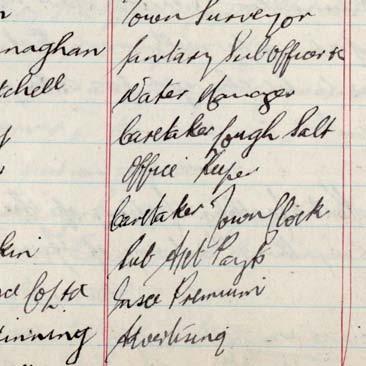 Town Surveyor
naghan Sanitary Sub Officer &c
tchell Water Manager
Caretaker Lough Salt
Office Keeper
Caretaker Town Clock
kin Sub Act
ace Co Ltd Insce Premium
unning Advertising